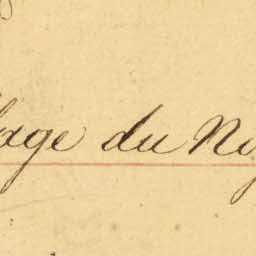 lage du Ni